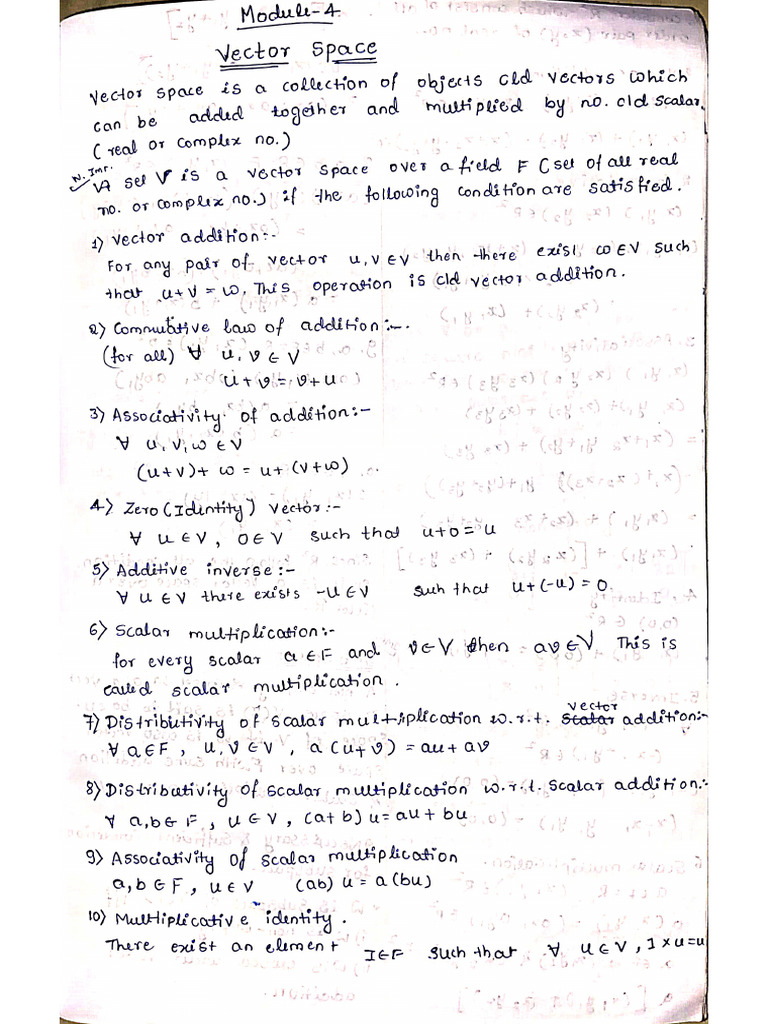 Module-4
Vector Space
Vector space is a collection of objects cld vectors which
can be added together and multiplied by no. cld scalar.
(real or complex no.)
V. Imr.
A set V is a vector space over a field F (set of all real
no. or complex no.) if the following condition are satisfied.
1) Vector addition:-
For any pair of vector u,v∈V then there exist w∈V such
that u+v = w. This operation is cld vector addition.
2) Commutative law of addition:-.
(for all) ∀ u, v ∈ V
u+v = v+u
3) Associativity of addition:-
∀ u, v, w ∈ V
(u+v)+ w = u+ (v+w)
4) Zero (Identity) Vector:-
∀ u ∈ V, 0∈V such that u+0= u
5) Additive inverse:-
∀ u∈V there exists -u∈V such that u+(-u) = 0.
6) Scalar multiplication:-
for every scalar a∈F and v∈V then av∈V This is
called scalar multiplication.
7) Distributivity of scalar multiplication w.r.t. Scalar vector addition:-
∀ a∈F, u, v∈V, a(u+v) = au+av
8) Distributivity of scalar multiplication w.r.t. scalar addition:-
∀ a,b∈ F, u∈V, (a+b) u= au+bu
9) Associativity of scalar multiplication
a,b∈F, u∈V (ab) u = a(bu)
10) Multiplicative identity.
There exist an element I∈F such that ∀ u∈V, 1×u=u